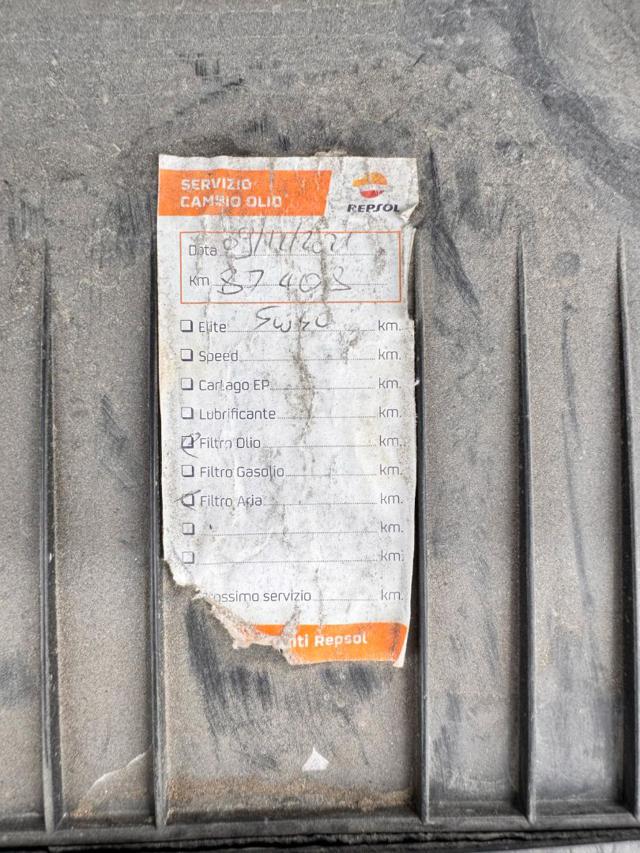 SERVIZIO
CAMBIO OLIO
REPSOL
Data 03/12/2021
Km 87 408
Elite 5W40 km.
Speed km.
Cartago EP km.
Lubrificante km.
Filtro Olio km.
Filtro Gasolio km.
Filtro Aria km.
km.
km.
rossimo servizio km.
nti Repsol